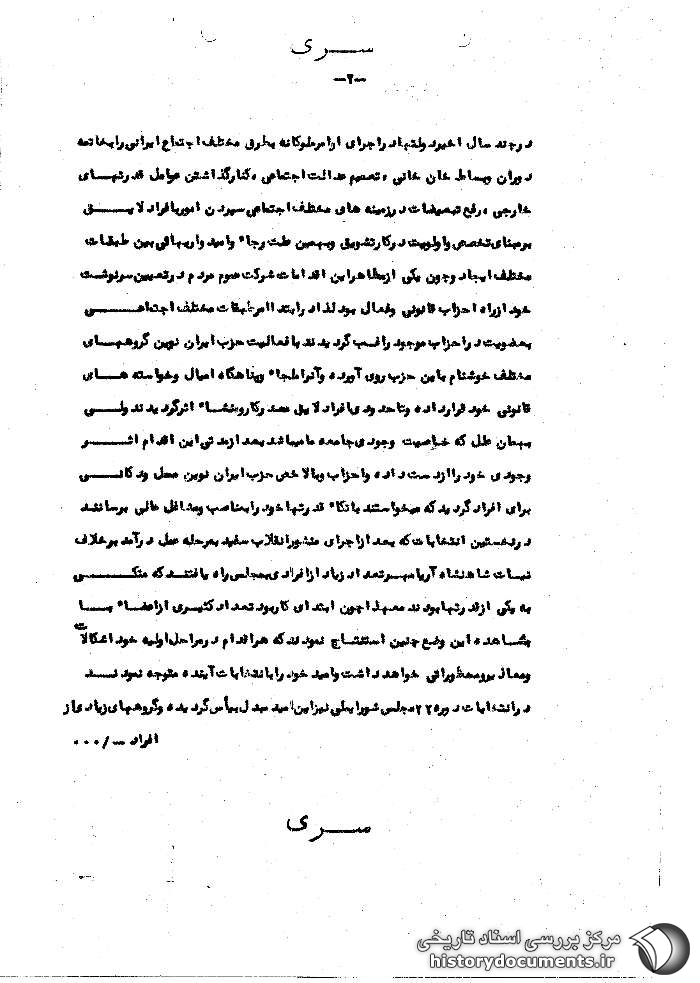 سـری
-۲-
در چند سال اخیر دولتها با اجرای اوامر ملوکانه بطرق مختلف اجتماع ایرانی را بخاتمه
دوران وبساط خان خانی ، تعمیم عدالت اجتماعی ، کنارگذاشتن عوامل قدرتهای
خارجی ، رفع تبعیضات در زمینه های مختلف اجتماعی سپردن امور بافراد لایـــق
بر مبنای تخصص واولویت در کار تشویق وبهمین علت رجاء وامید واریهائی بین طبقات
مختلف ایجاد وچون یکی ازمظاهر این اقدامات شرکت عموم مردم در تعیین سرنوشت
خود از راه احزاب قانونی وفعال بود لذا در ابتدا امر طبقات مختلف اجتماعـــــی
بعضویت در احزاب موجود راغب گردیدند با فعالیت حزب ایران نوین گروههـای
مختلف خوشنام باین حزب روی آورده وآنرا ملجاء وپناهگاه امیال وخواسته هــای
قانونی خود قرارداده وتاحدودی افراد لایق مصدر کار ومنشاء اثر گردیدند ولــی
بهمان علل که خاصیت وجودی جامعه ما میباشد بعد ازمدتی این اقدام اثـــر
وجودی خود را از دست داده واحزاب وبالاخص حزب ایران نوین محل ودکانـــی
برای افراد گردید که میخواستند با اتکاء قدرتها خود را بمناصب ومشاغل عالی برسانند
در نخستین انتخابات که بعد از اجرای منشور انقلاب سفید بمرحله عمل درآمد برخلاف
نیات شاهنشاه آریامهر تعداد زیاد از افرادی بمجلس راه یافتند که متکــــــی
به یکی از قدرتها بودند معهذا چون ابتدای کار بود تعداد کثیری از اعضاء بــا
مشاهده این وضع چنین استنتاج نمودند که هر اقدام در مراحل اولیه خود اشکالات
ومعاذیر ومحظوراتی خواهد داشت وامید خود را بانتخابات آینده متوجه نمودنــد
در انتخابات دوره ۲۲ مجلس شورایملی نیز این امید مبدل بیأس گردیده وگروههای زیادی از
افراد —/۰۰۰
سـری
مرکز بررسی اسناد تاریخی
historydocuments.ir